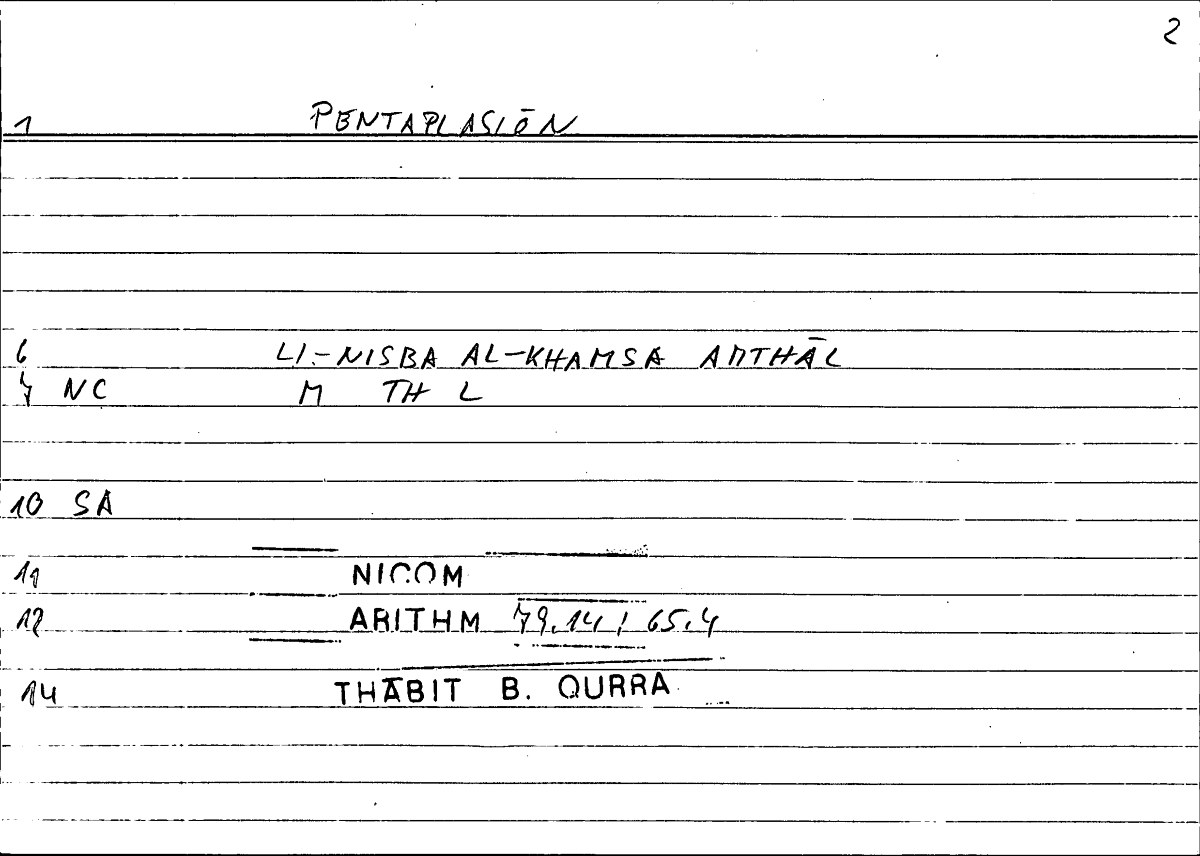 2
1 PENTAPLASIŌN
6 LI-NISBA AL-KHAMSA AMTHĀL
7 NC M TH L
10 SA
11 NICOM
12 ARITHM 79.14 / 65.4
14 THĀBIT B. QURRA